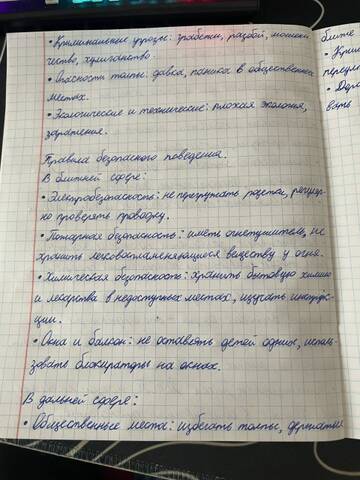 • Криминальные угрозы: грабежи, разбой, мошенни
чество, хулиганство.
• Опасности толпы: давка, паника в общественных
местах.
• Экологические и технические: плохая экология,
задымления.
Правила безопасного поведения.
В ближней сфере:
• Электробезопасность: не перегружать розетки, регуляр-
но проверять проводку.
• Пожарная безопасность: иметь огнетушитель, не
хранить легковоспламеняющиеся вещества у огня.
• Химическая безопасность: хранить бытовую химию
и лекарства в недоступных местах, изучать инструк-
ции.
• Окна и балкон: не оставлять детей одних, исполь-
зовать блокираторы на окнах.
В дальней сфере:
• Общественные места: избегать толпы, держаться
ближе
• Крим
переул
вать